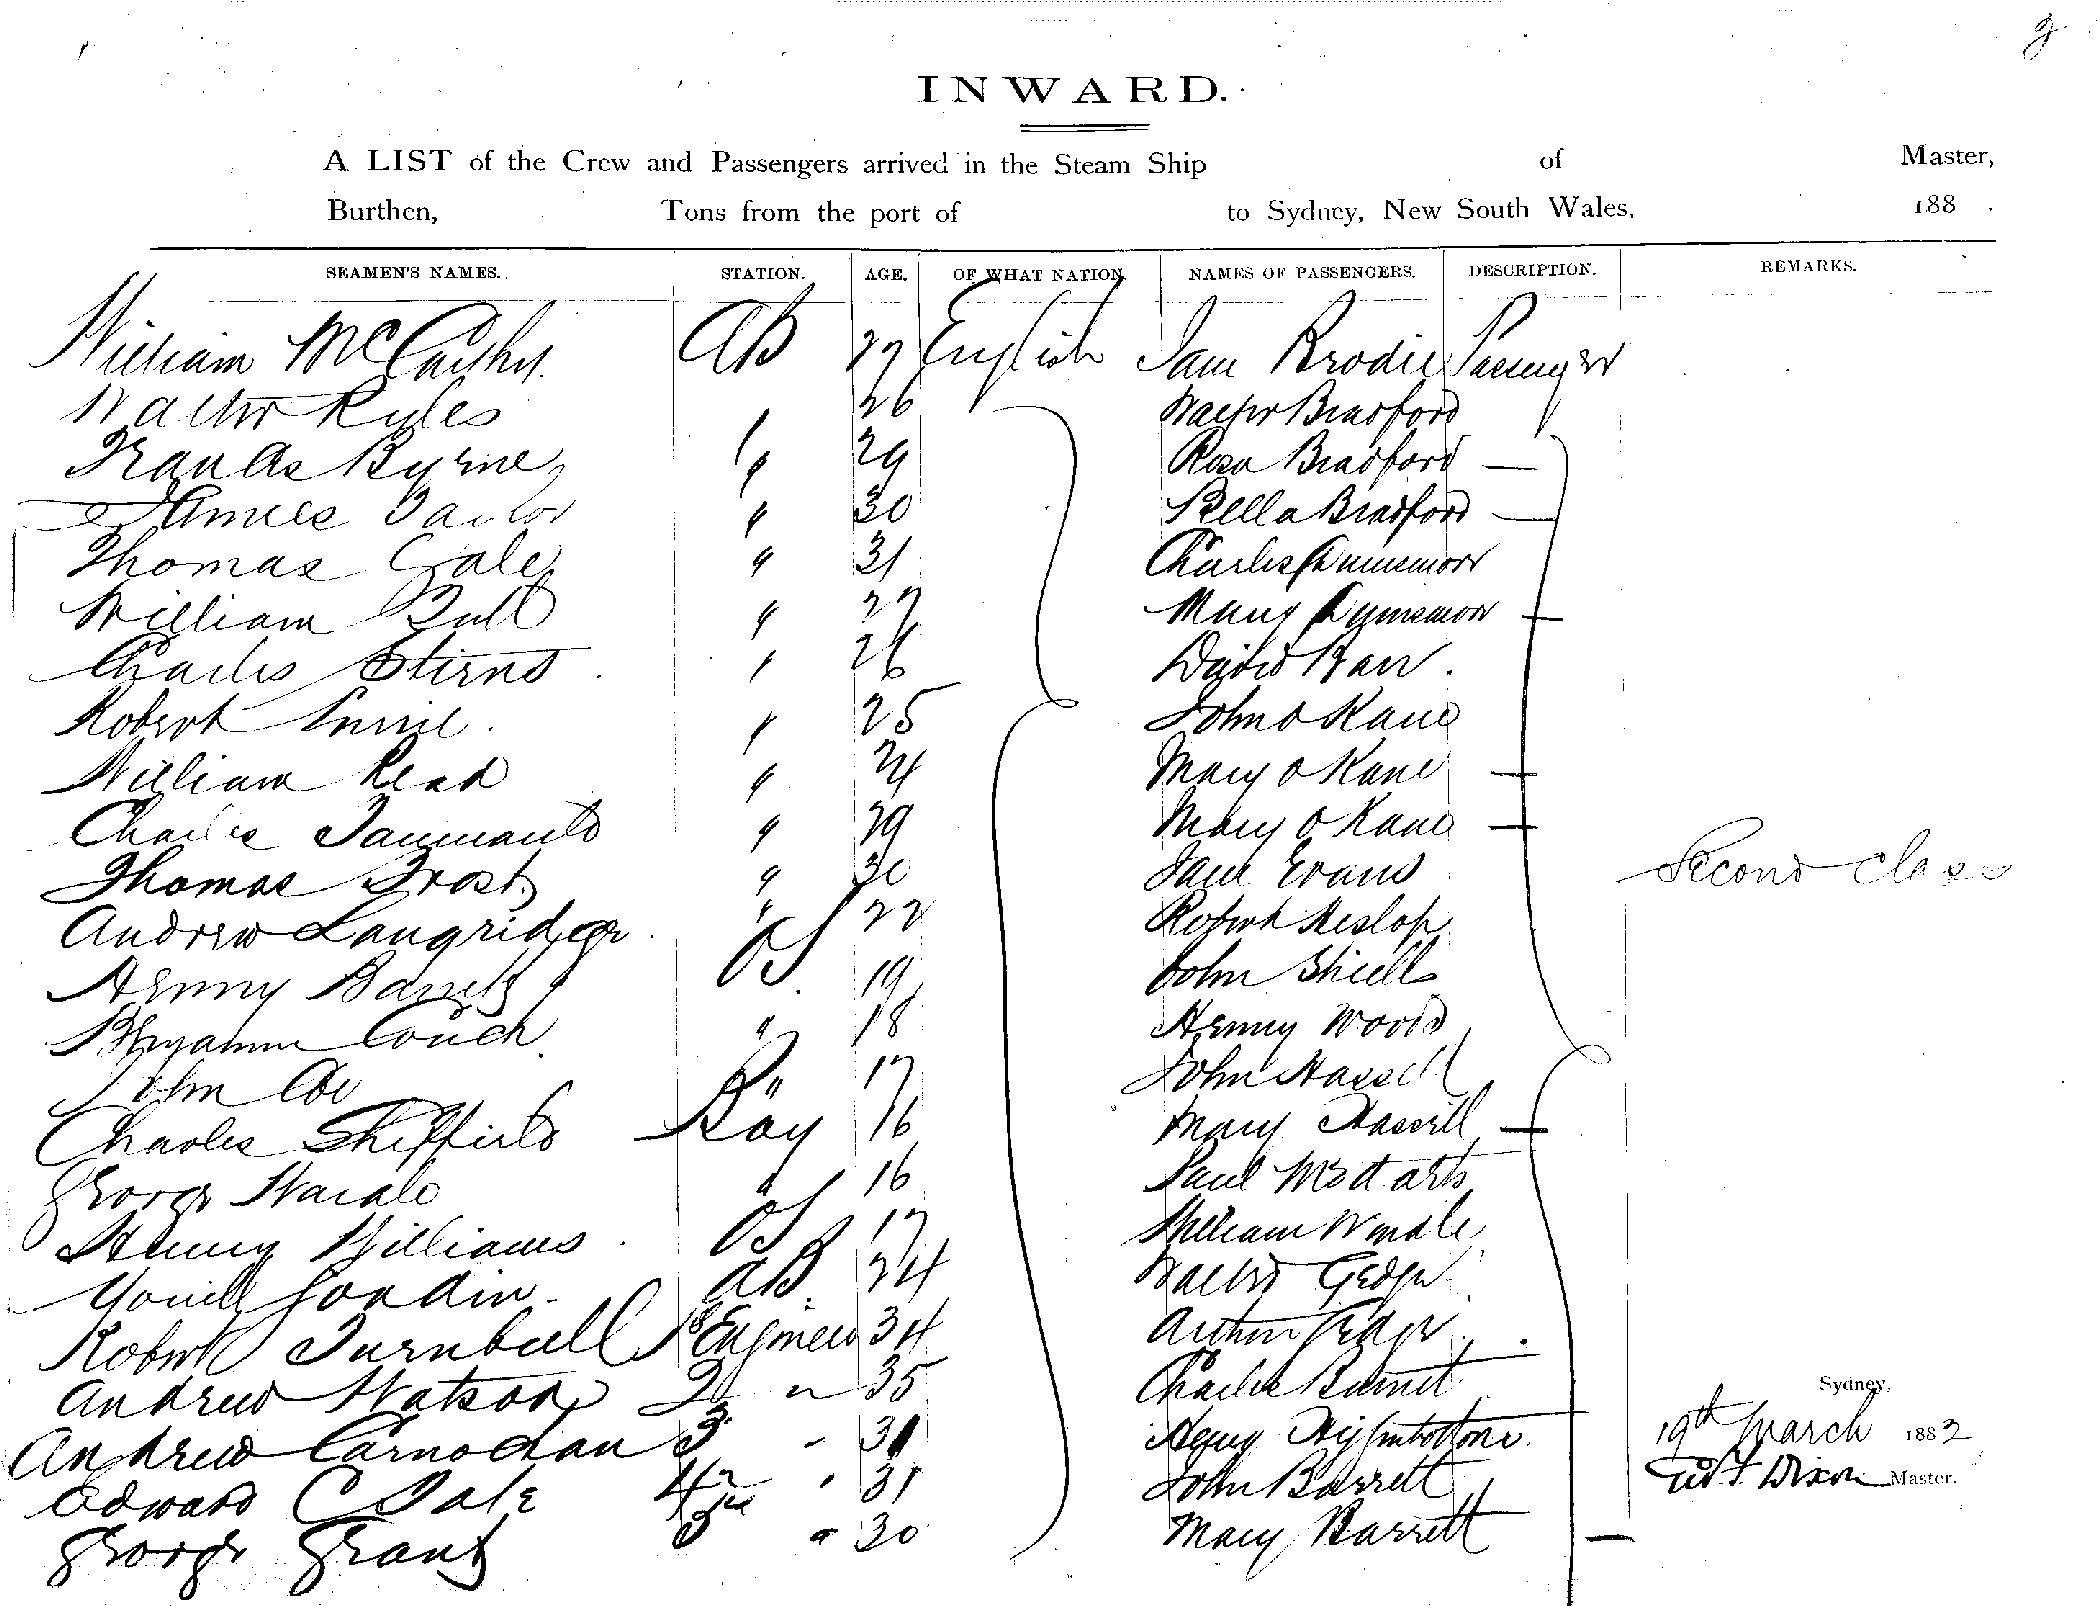 INWARD.
A LIST of the Crew and Passengers arrived in the Steam Ship of Master,
Burthen, Tons from the port of to Sydney, New South Wales, 188 .
SEAMEN'S NAMES. STATION. AGE. OF WHAT NATION. NAMES OF PASSENGERS. DESCRIPTION. REMARKS.
William McCarthy. AB 27 English Jane Brodie Passenger
Walter Ryles 26 Walter Bradford
Francis Byrne " 29 Rosa Bradford —
James Taylor " 30 Bella Bradford —
Thomas Gale " 31 Charles Dunsmore
William Bull " 27 Mary Dunsmore —
Charles " 26 David Barr.
Robert " 25 John O Kane
William Read " 24 Mary O Kane —
Charles " 29 Mary O Kane —
Thomas Frost " 30 Jane Evans Second Class
Andrew Langridge " 22 Robert Heslop
Henry OS 19 John Shiells
Benjamin Couch " 18 Henry Woods
John Coe " 17 John Hassell
Charles Sheffield Boy 16 Mary Hassell —
George " 16 Paul
Henry Williams OS 17 William Windle
Gordin AB 24 Walter
Robert Turnbull 1st Engineer 34 Arthur
Andrew Watson 2 " 35 Charles Burnet
Andrew Carnochan 3 " 31 Henry Higginbottom
Edward C Dale 4 " 31 John Barrett
George Grant 5 " 30 Mary Barrett —
Sydney,
19th March 1882
Dixon Master.